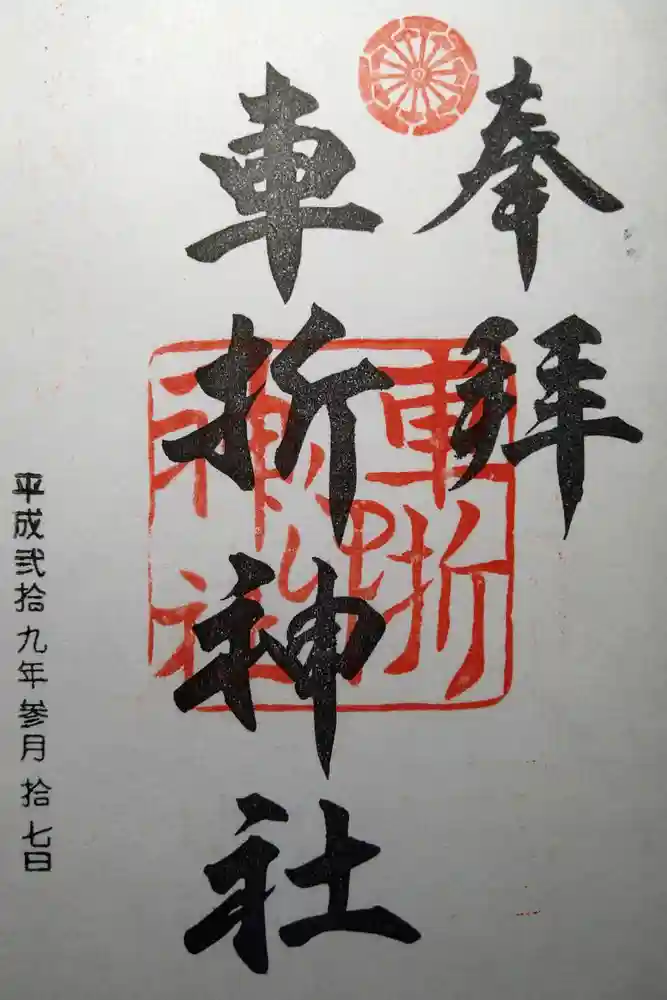 奉拝
車折神社
車折神社
平成弐拾九年参月拾七日